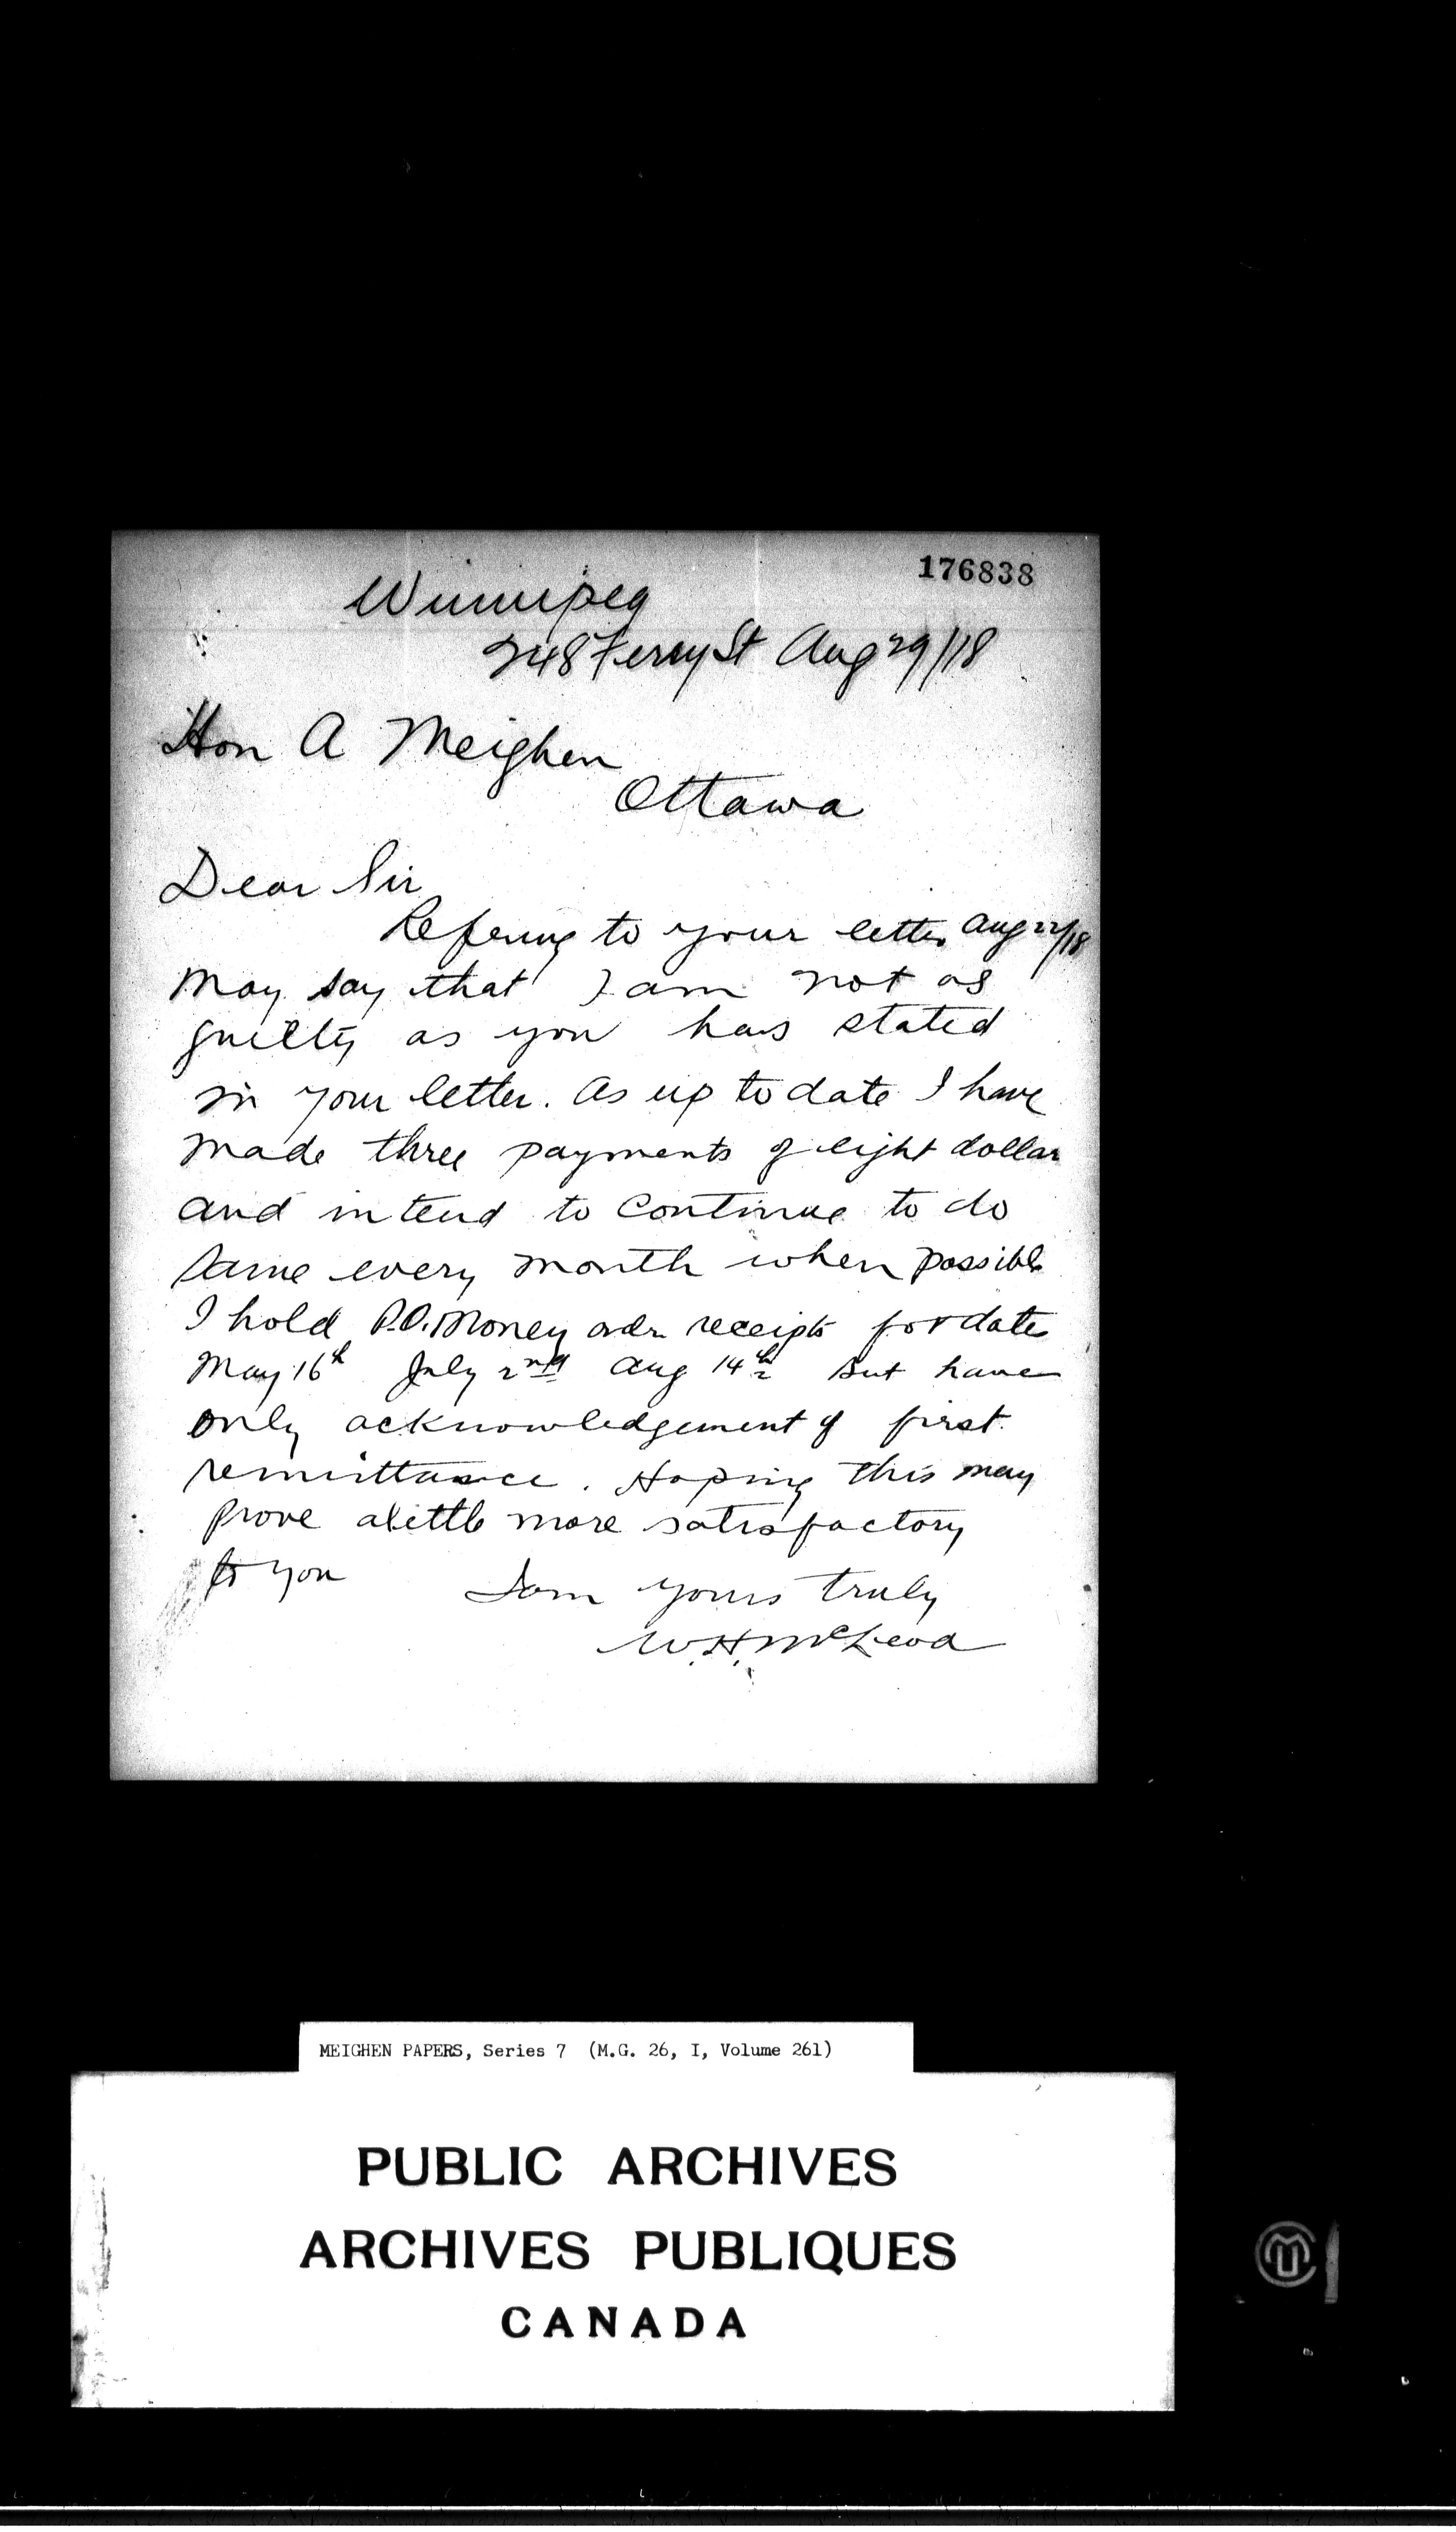 176838
Winnipeg
248 Ferry St Aug 29/18
Hon A Meighen
Ottawa
Dear Sir
Refering to your letter Aug 22/18
May say that I am not as
guilty as you have stated
in your letter. As up to date I have
made three payments of eight dollar
and intend to continue to do
same every month when possible
I hold P.O. Money order receipts for date
May 16th July 2nd Aug 14th But have
only acknowledgement of first
remittance. Hoping this may
prove alittle more satisfactory
to you
I am yours truly
W.H. McLeod
MEIGHEN PAPERS, Series 7 (M.G. 26, I, Volume 261)
PUBLIC ARCHIVES
ARCHIVES PUBLIQUES
CANADA